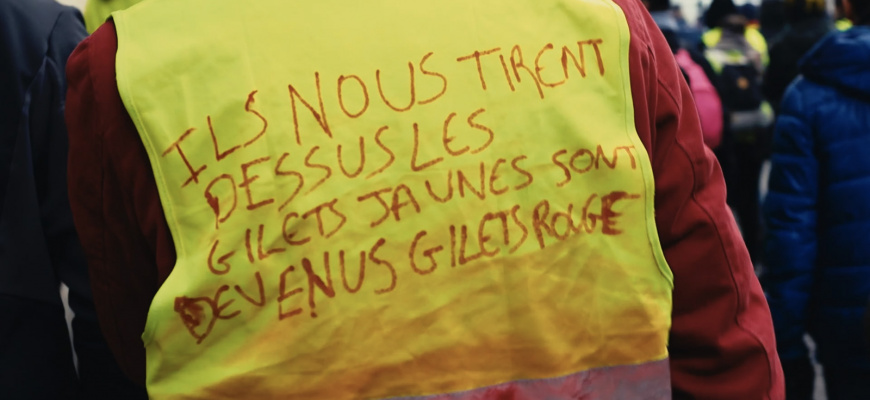 ILS NOUS TIRENT
DESSUS LES
GILETS JAUNES SONT
DEVENUS GILETS ROUGE